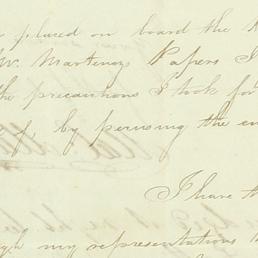 placed on board the
Mr. Martinez Papers I
the precautions I took for
by perusing the en
I have th
my representations t